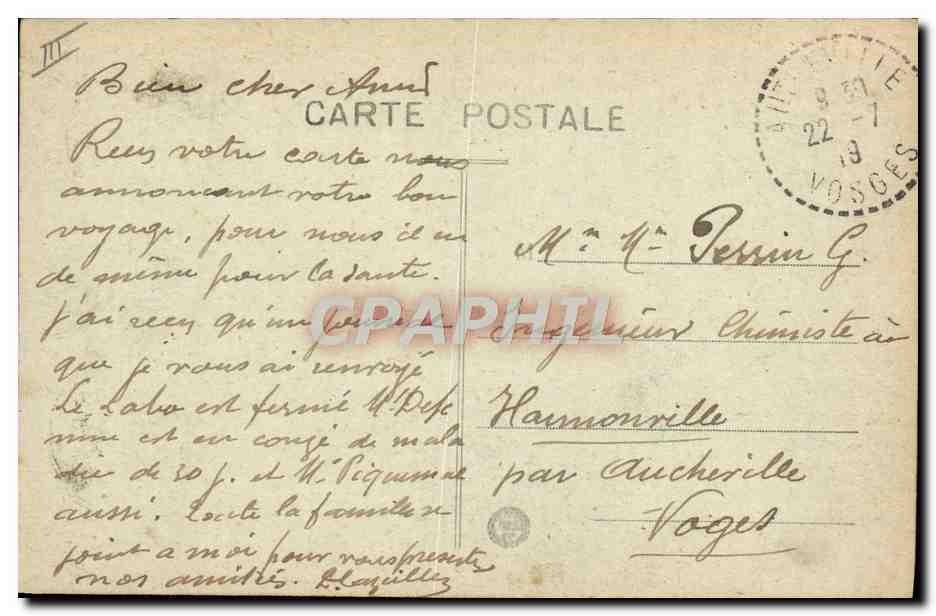 III
Bien cher Ami
CARTE POSTALE
Recu votre carte nous
annoncant votre bon
voyage, pour nous il en
de même pour la sante.
j'ai recu qu'un journal
que je vous ai renvoyé
Le Labo est fermé Mr Desc
mme est en congé de mala
die de 30 j. et Mr Piquemal
aussi. Toute la famille se
joint a moi pour vous presenter
nos amities.
VILLE
9 30
22 -7
19
VOSGES
Mr Mm Perrin G.
Ingenieur Chimiste à
Harmonville
par Aucheville
Voges
CPAPHIL